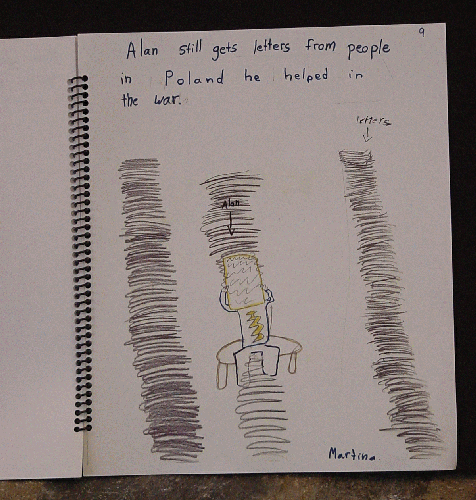 9
Alan still gets letters from people
in Poland he helped in
the war.
letters
Alan
Martina